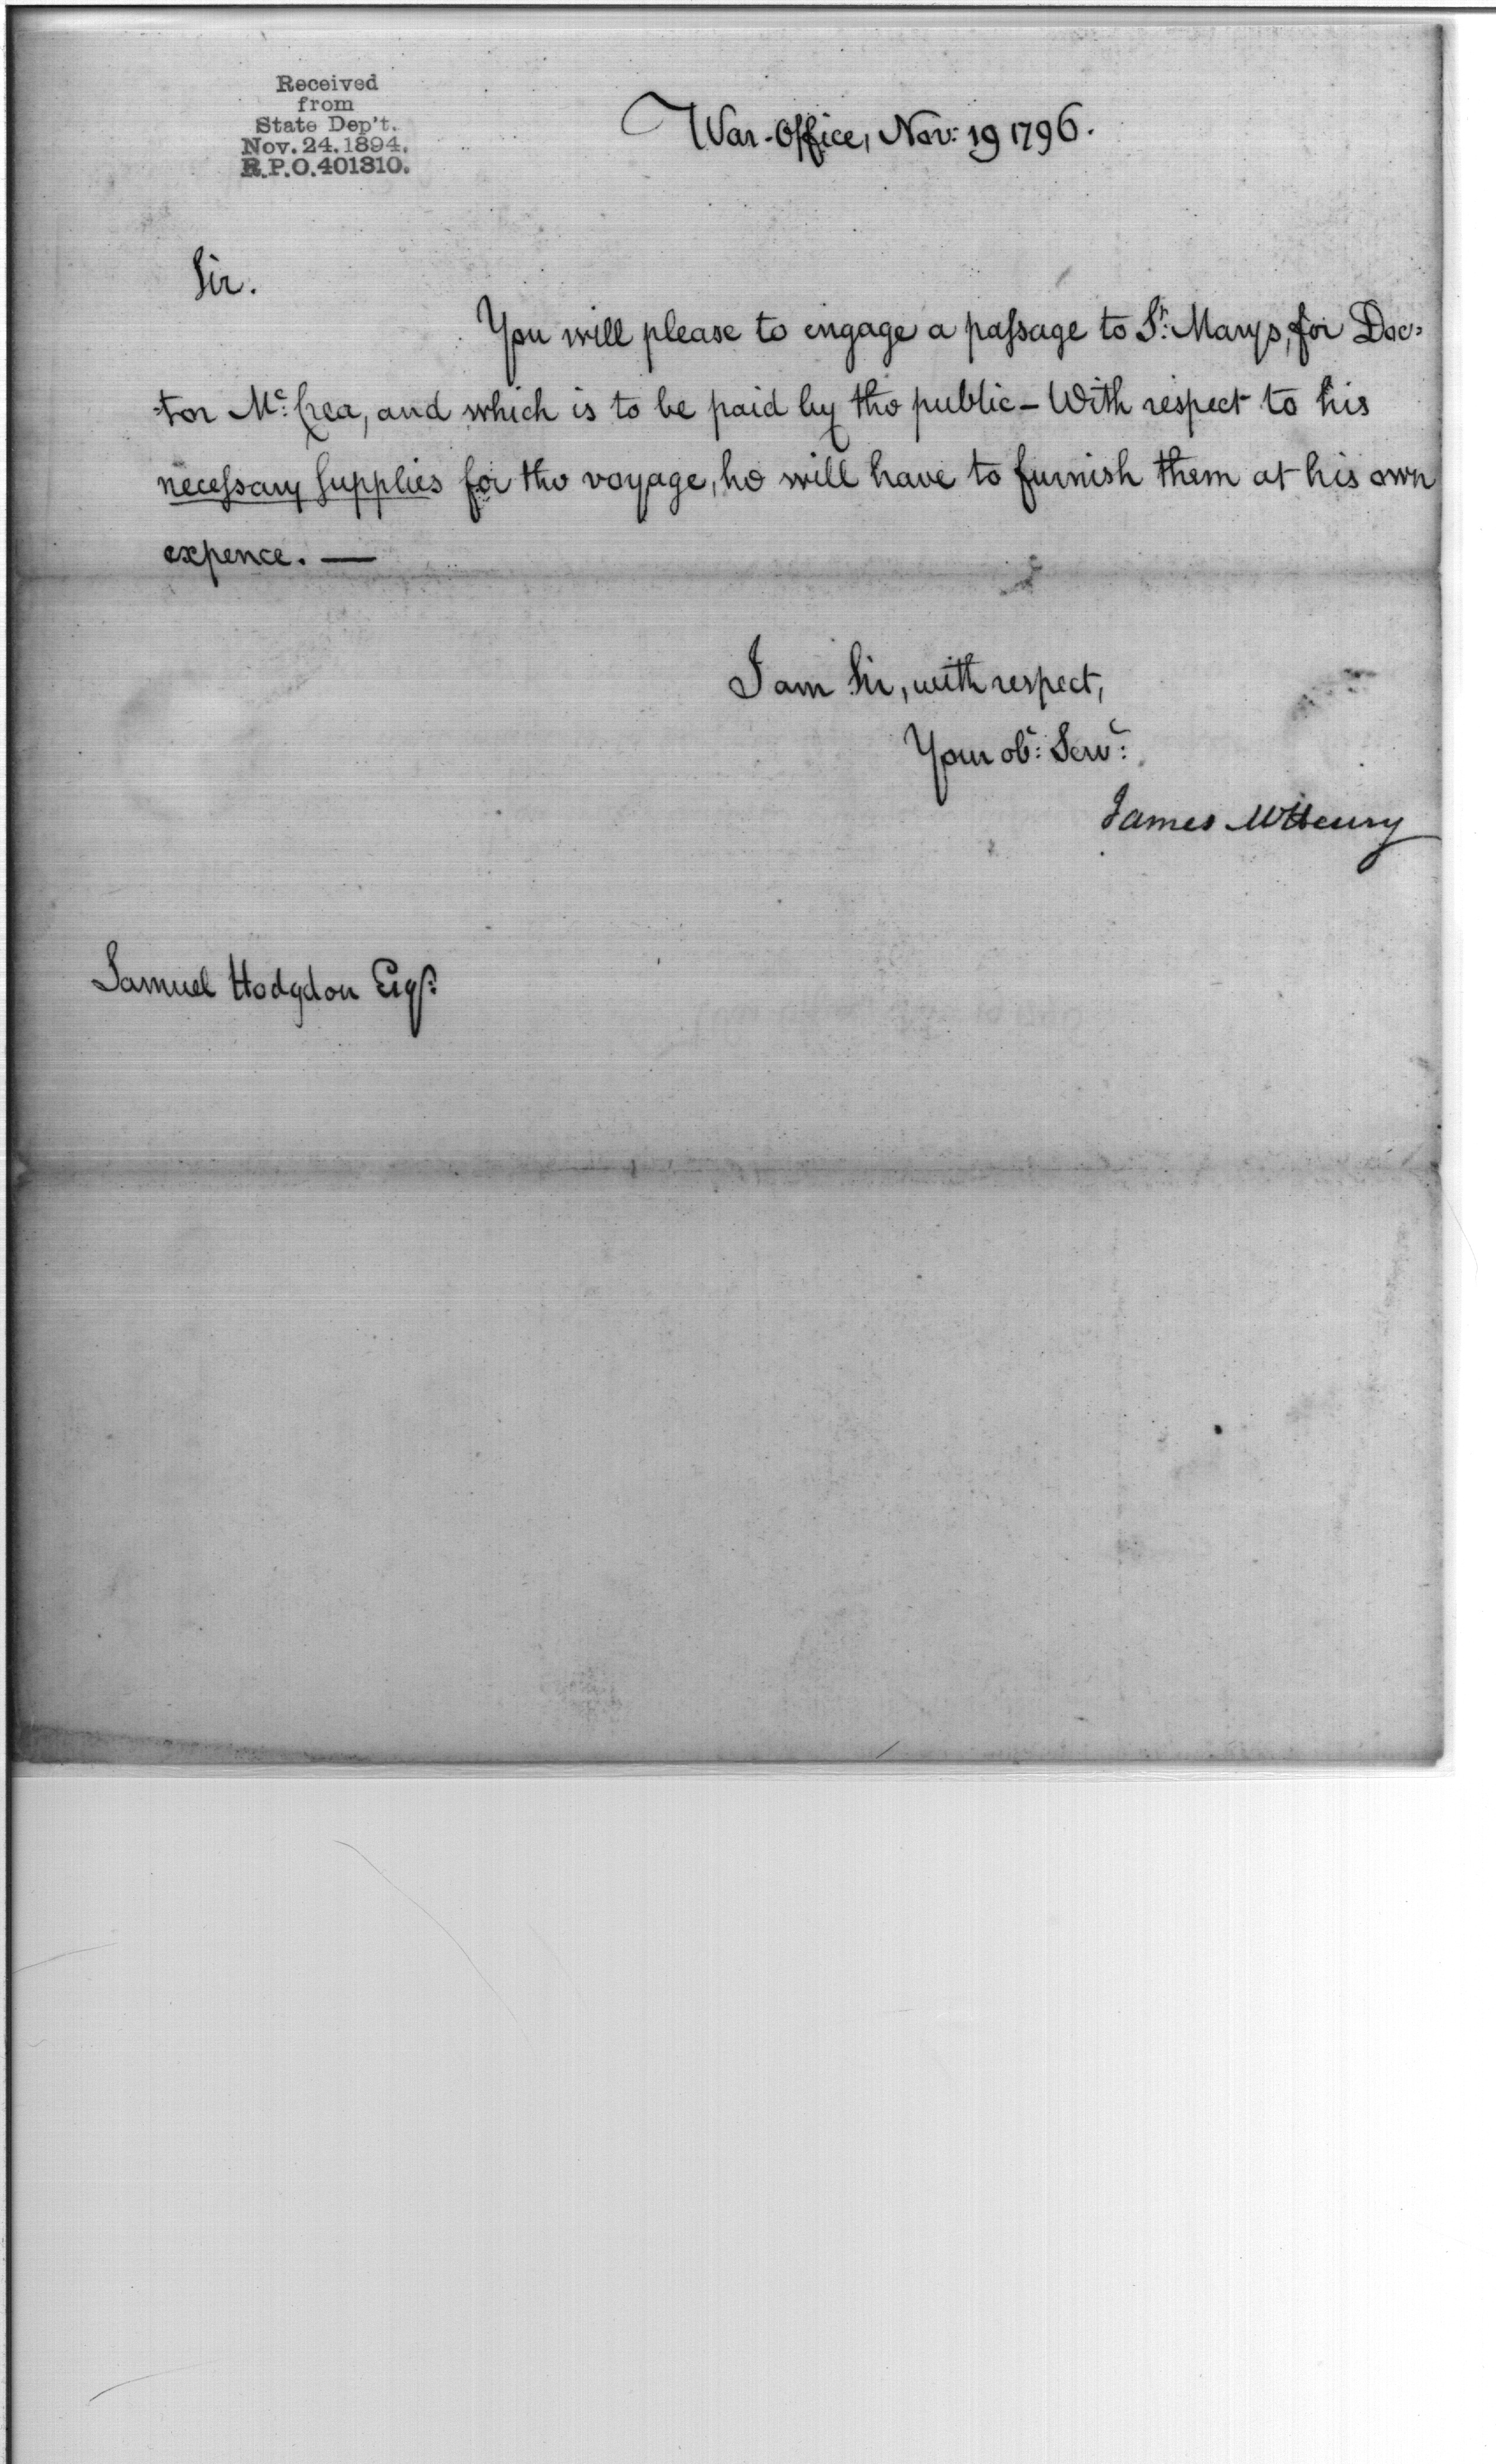 Received
from
State Dep't.
Nov. 24. 1894.
R.P.O. 401310.
War-Office, Nov: 19 1796.
Sir.
You will please to engage a paſsage to St: Marys, for Doc=
=tor Mc: Crea, and which is to be paid by the public – With respect to his
neceſsary supplies for the voyage, he will have to furnish them at his own
expence. —
I am Sir, with respect,
Your obt: Servt:
James McHenry
Samuel Hodgdon Esqr: